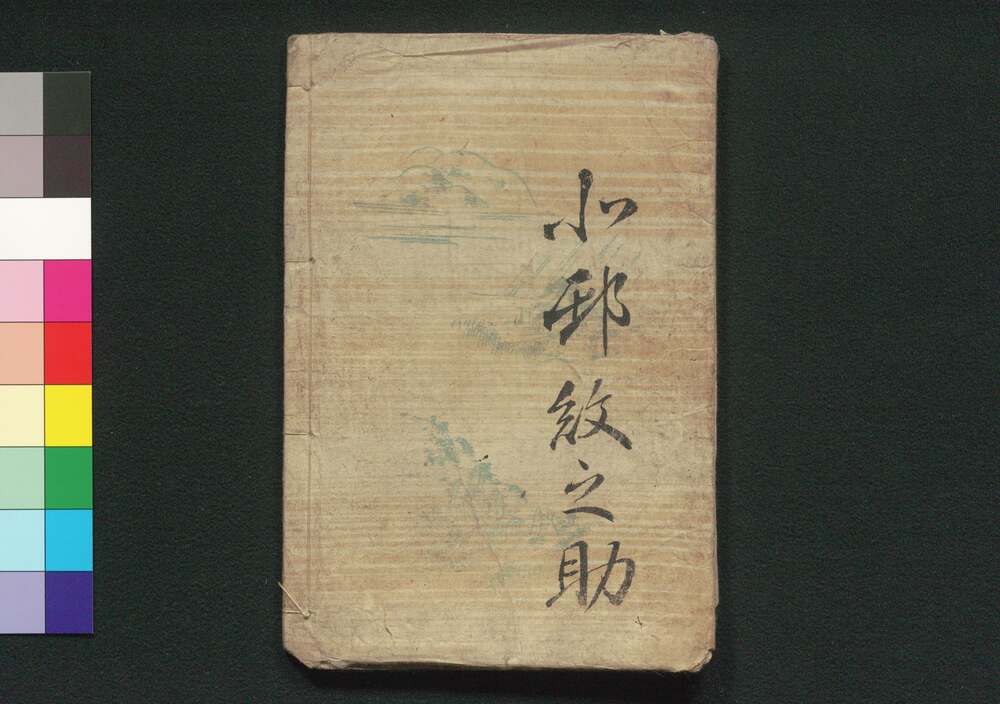 小邨紋之助